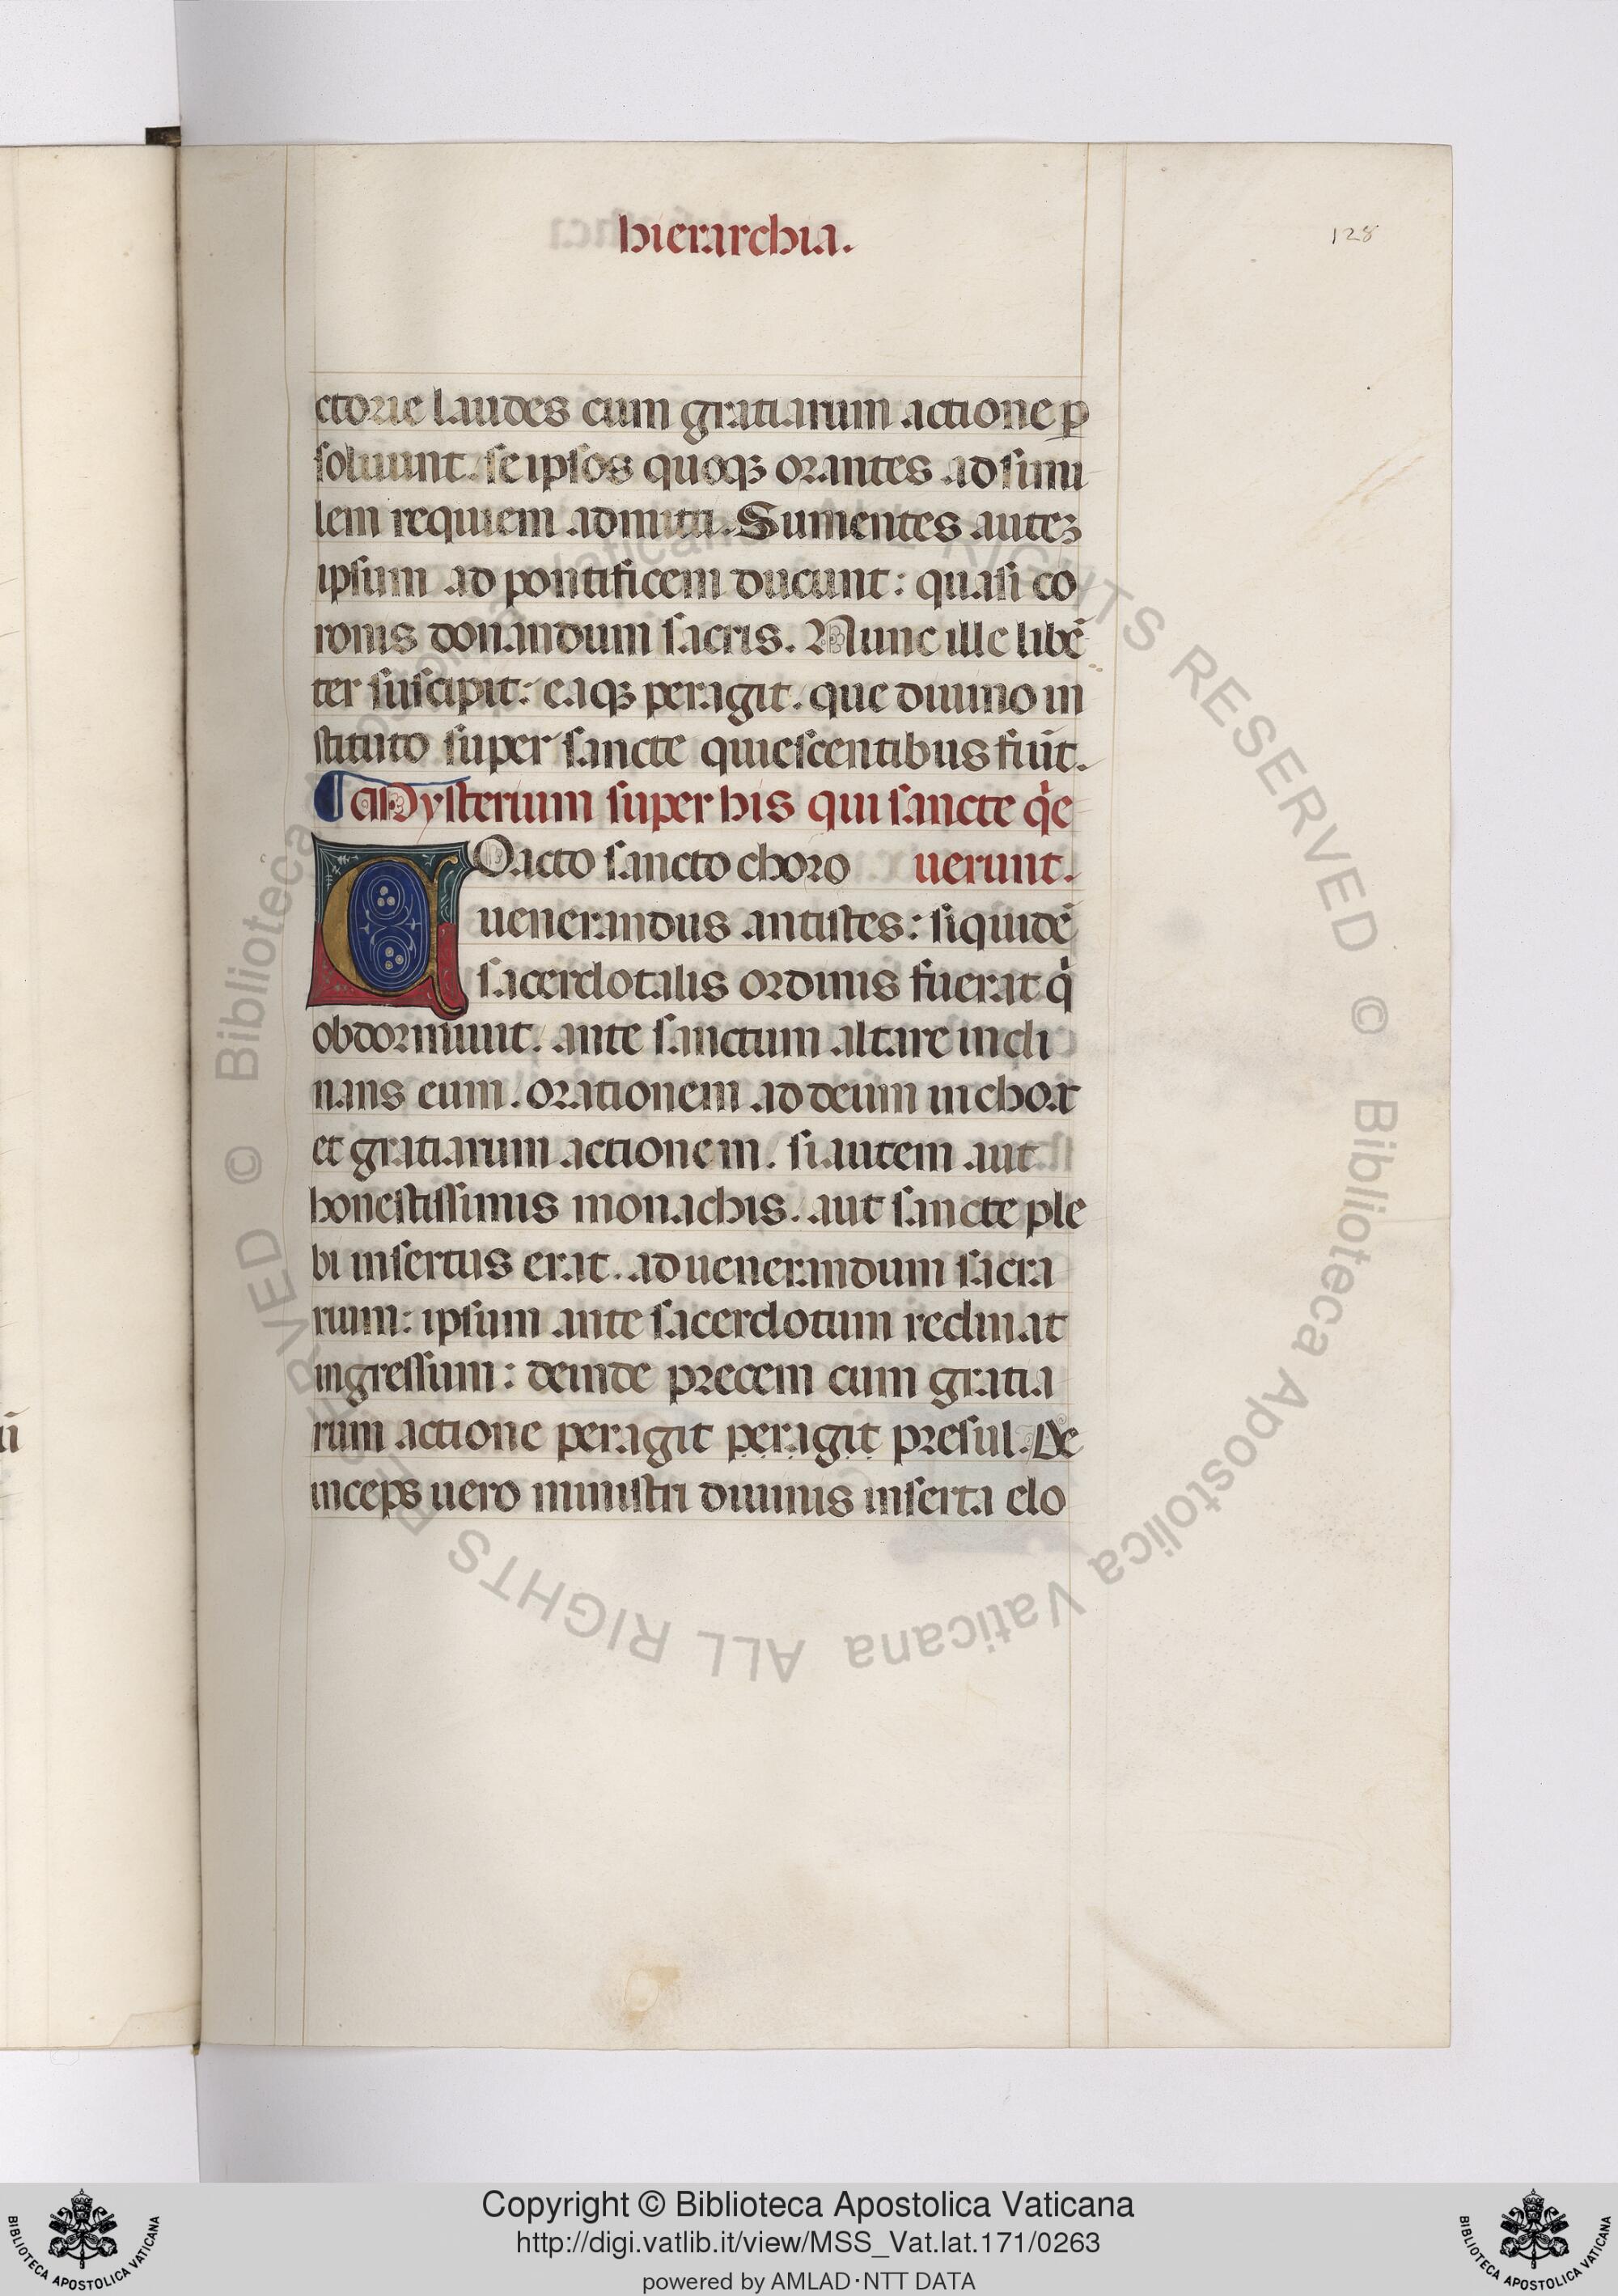 hierarchia.
128
ctorie laudes cum gratiarum actione ꝑ
soluunt. se ipsos quoqꝫ orantes ad simi
lem requiem admitti. Sumentes auteꝫ
ipsum ad pontificem ducunt: quasi co
ronis donandum sacris. Nunc ille libē
ter suscipit: eaqꝫ peragit. que diuino in
stituto super sancte quiescentibus fiūt.
¶ Mysterium super his qui sancte qͥe
Coacto sancto choro uerunt.
uenerandus antistes: siquidē
sacerdotalis ordinis fuerat qͥ
obdormiuit. ante sanctum altare incli
nans eum. orationem ad deum inchoat
et gratiarum actionem. si autem aut
honestissimis monachis. aut sancte ple
bi insertus erat. ad uenerandum sacra
rium: ipsum ante sacerdotum reclinat
ingressum: deinde precem cum gratia
rum actione peragit peragit presul. De
inceps uero ministri diuinis inserta elo
© Biblioteca Apostolica Vaticana ALL RIGHTS RESERVED © Biblioteca Apostolica Vaticana ALL RIGHTS RESERVED
Copyright © Biblioteca Apostolica Vaticana
http://digi.vatlib.it/view/MSS_Vat.lat.171/0263
powered by AMLAD·NTT DATA
BIBLIOTECA APOSTOLICA VATICANA
BIBLIOTECA APOSTOLICA VATICANA